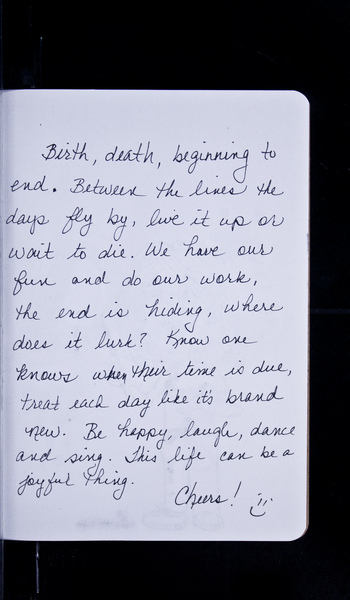 Birth, death, beginning to
end. Between the lines the
days fly by, live it up or
wait to die. We have our
fun and do our work,
the end is hiding, where
does it lurk? Know one
knows when their time is due,
treat each day like it's brand
new. Be happy, laugh, dance
and sing. This life can be a
joyful thing.
Cheers!